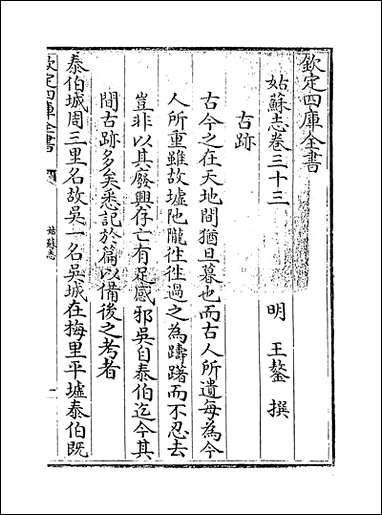 欽定四庫全書
姑蘇志卷三十三
明 王鏊 撰
古跡
古今之在天地間猶旦暮也而古人所遺每為今
人所重雖故墟阤隴徃徃過之為躊躇而不忍去
豈非以其廢興存亡有足感邪吳自泰伯迄今其
間古跡多矣悉記於篇以備後之考者
泰伯城周三里名故吳一名吳城在梅里平墟泰伯既
欽定四庫全書
姑蘇志